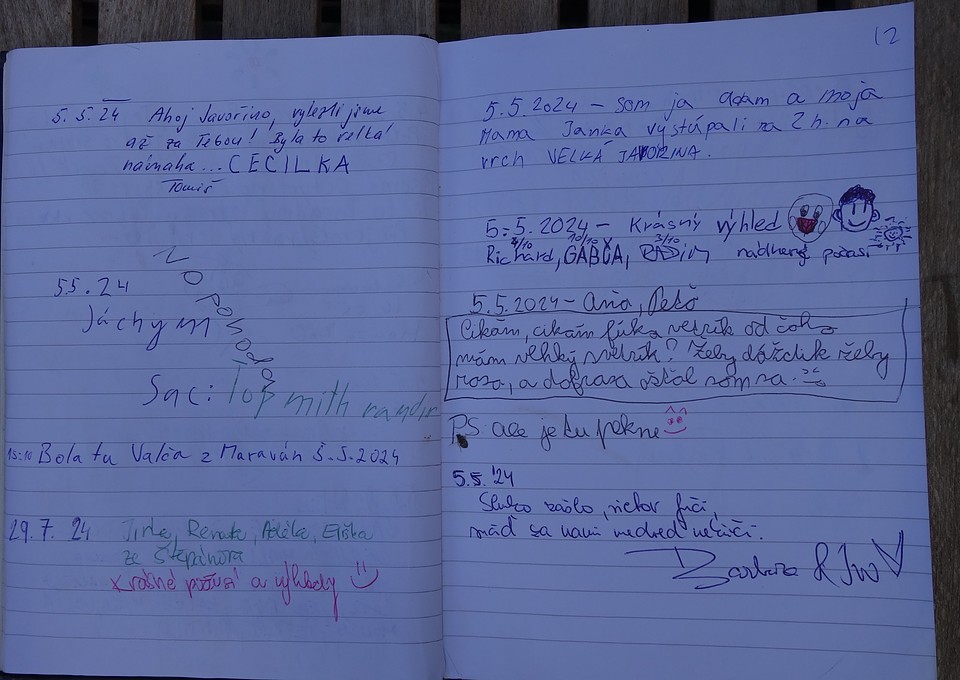 5.5.24 Ahoj Javořino, vylezli jsme
až za Tebou! Byla to velká
námaha... CECILKA
Tomiš
5.5.24
Jáchym
Sac: Top mith randir
15:10 Bola tu Valča z Maraván 5.5.2024
29.7. 24 Jirka, Renata, Adéla, Eliška
ze Štěpánova
Krásné počasí a výhledy
12
5.5.2024 – som ja adam a moja
Mama Janka vystúpali za 2h. na
vrch VELKÁ JAVORINA.
5.5.2024 – Krásný výhled
9/10 10/10 3/10
Richard, GABČA, RADIM nádherné počasí
5.5.2024 – Peťo
Cikám, cikám fúka vetrík od čoho
mám vlhký svetrík? Žeby dáždik žeby
rosa, a doprasa ošťal som sa.
PS ale je tu pekne
5.5.'24
Slnko zašlo, vietor fučí,
snáď sa nám medveď
Barbora